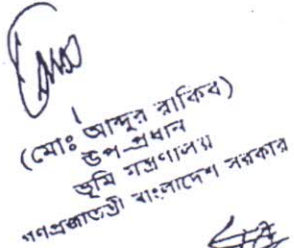 (মোঃ আব্দুর রাকিব)
উপ-প্রধান
ভূমি মন্ত্রণালয়
গণপ্রজাতন্ত্রী বাংলাদেশ সরকার